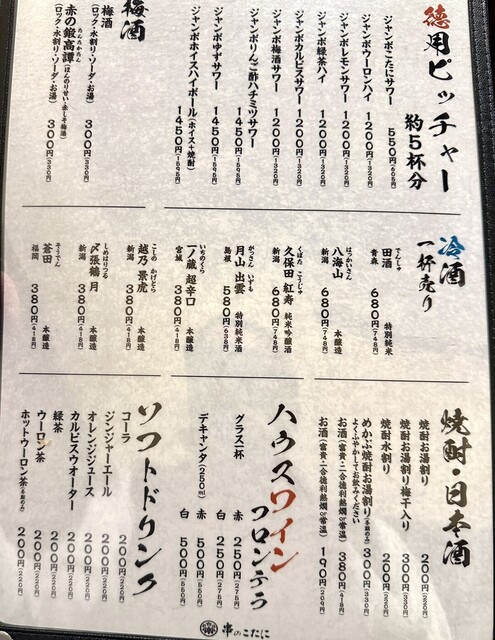 徳用ピッチャー
約5杯分
ジャンボこたにサワー 550円(605円)
ジャンボウーロンハイ 1200円(1320円)
ジャンボレモンサワー 1200円(1320円)
ジャンボ緑茶ハイ 1200円(1320円)
ジャンボカルピスサワー 1200円(1320円)
ジャンボ梅酒サワー 1200円(1320円)
ジャンボりんご酢ハチミツサワー 1450円(1595円)
ジャンボゆずサワー 1450円(1595円)
ジャンボホイスハイボール(ホイス+焼酎) 1450円(1595円)
梅酒
梅酒
(ロック・水割り・ソーダ・お湯) 300円(330円)
赤の鍛高譚(ほんのり甘い・赤しそ梅酒)
たんたかたん
(ロック・水割り・ソーダ・お湯) 300円(330円)
冷酒
一杯売り
でんしゅ
田酒 特別純米
青森 680円(748円)
はっかいさん
八海山 本醸造
新潟 680円(748円)
くぼた こうじゅ
久保田 紅寿 純米吟醸酒
新潟 680円(748円)
がっさん いずも
月山 出雲 特別純米酒
島根 580円(638円)
いちのくら
一ノ蔵 超辛口 本醸造
宮城 380円(418円)
こしの かげとら
越乃 景虎 本醸造
新潟 380円(418円)
しめはりつる
〆張鶴 月 本醸造
新潟 380円(418円)
そうでん
蒼田 本醸造
福岡 380円(418円)
焼酎・日本酒
焼酎お湯割り 200円(220円)
焼酎お湯割り梅干入り 300円(330円)
焼酎水割り 200円(220円)
めかぶ焼酎お湯割り(冬期のみ) 300円(330円)
よくふやかしてお飲みください
お酒(富貴・二合徳利熱燗or常温) 380円(418円)
お酒(富貴・一合徳利熱燗or常温) 190円(209円)
ハウスワイン
フロンテラ
グラス一杯 赤 250円(275円)
白 250円(275円)
デキャンタ(250ml) 赤 500円(550円)
白 500円(550円)
ソフトドリンク
コーラ 200円(220円)
ジンジャーエール 200円(220円)
オレンジジュース 200円(220円)
カルピスウオーター 200円(220円)
緑茶 200円(220円)
ウーロン茶 200円(220円)
ホットウーロン茶(冬期のみ) 200円(220円)
串のこたに